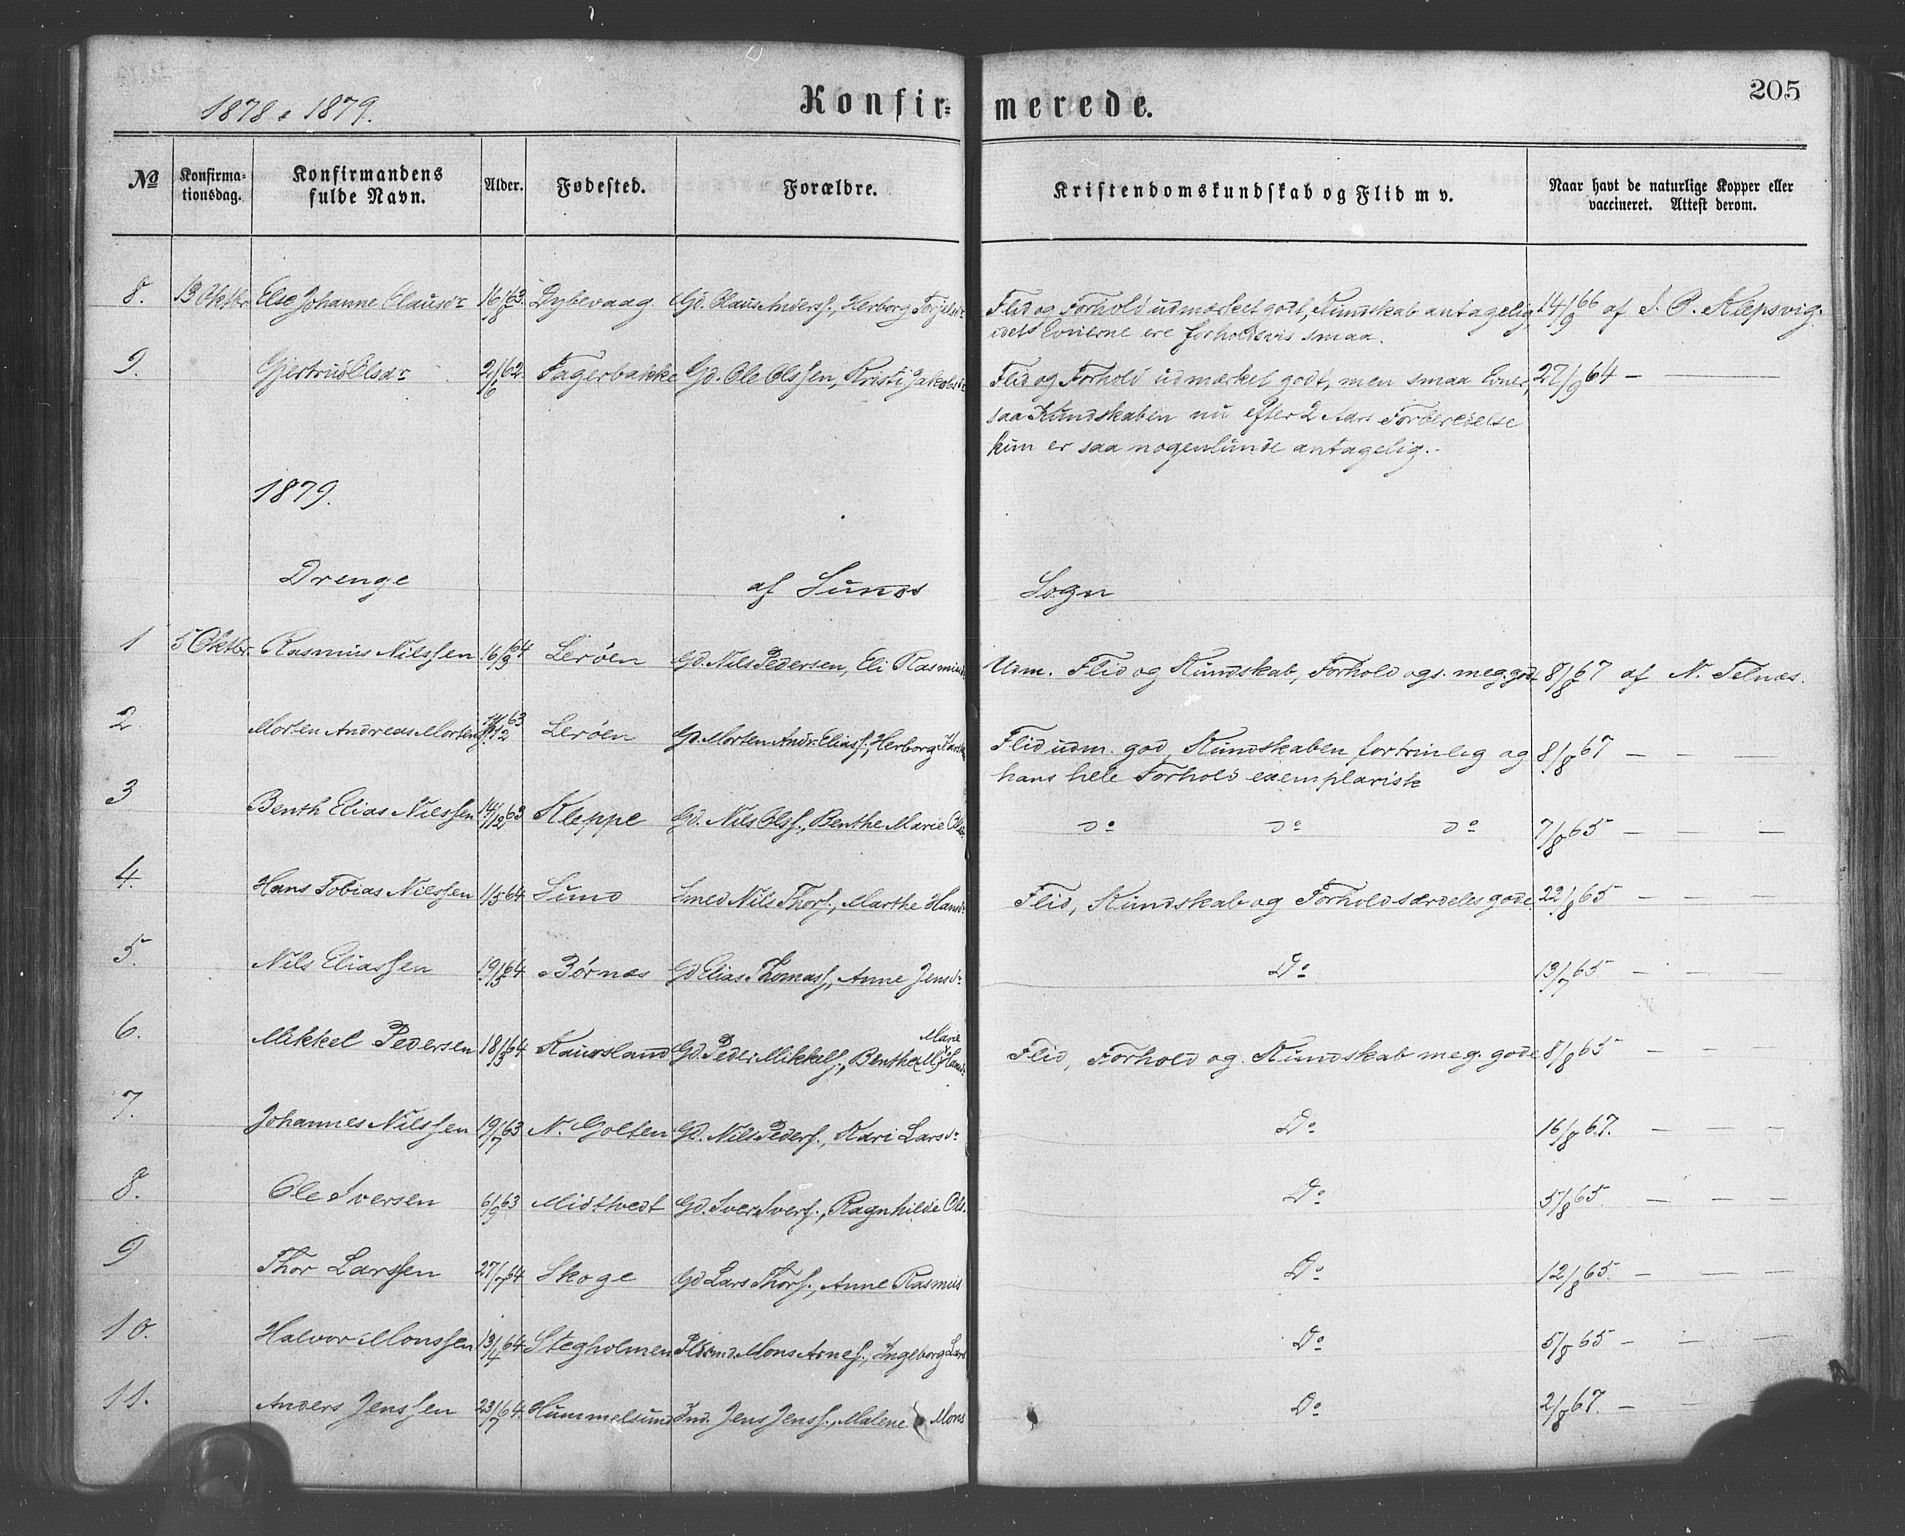 205
1878 & 1879.
Konfir= merede.
No
Konfirma-
tionsdag.
Konfirmandens
fulde Navn.
Alder.
Fødested.
Forældre.
Kristendomskundskab og Flid m v.
Naar havt de naturlige Kopper eller
vaccineret. Attest derom.
8. 13 Oktbr. Else Johanne Clausdr 16/8 63. Dybevaag. Gd. Claus Anderss., Herborg Flid og Forhold udmærket godt, Kundskab antagelig, 14/9 66 af J. O. Klepsvig.
idet Evnerne ere forholdsvis smaa.
9. Gjertrud Olsdr 2/6 62. Fagerbakke Gd. Ole Olssen, Kristi Jakobsdr Flid og Forhold udmærket godt, men smaa Evner, 27/9 64 — —
saa Kundskaben nu efter 2 Aars Forberedelse
kun er saa nogenlunde antagelig.
1879.
Drenge af Sunds Sogn
1 5 Oktbr. Rasmus Nilssen 16/3 64 Lerøen Gd. Nils Pedersen, Eli Rasmusd Udm. Flid og Kundskab, Forhold ogs. meg. godt 8/8 67 af N. Telnæs.
2. Morten Andreas Mortens. 14/12 63 Lerøen Gd. Morten Andr. Eliass., Herborg Flid udm. god, Kundskaben fortrinlig og 8/8 67 — — —
hans hele Forhold exemplarisk
3 Benth Elias Nilssen 14/12 63 Kleppe Gd. Nils Olss., Benthe Marie Ols do do do 7/8 65 — — —
4. Hans Tobias Nilssen 1/5 64 Sund Smed Nils Thors., Marthe Hansd Flid, Kundskab og Forhold særdeles gode. 22/8 65 — — —
5. Nils Eliassen 19/3 64 Børnæs Gd Elias Thomass., Anne Jensdr Do 13/7 65 — — —
6. Mikkel Pedersen 18/3 64 Kausland Gd. Peder Mikkels., Benthe Marie Hansd Flid, Forhold og Kundskab meg. gode 8/8 65 — — —
7. Johannes Nilssen 19/7 63 N. Golten Gd. Nils Peders., Kari Larsdr Do 16/8 67. — — —
8. Ole Iversen 6/9 63 Midttvedt Gd. Iver Ivers., Ragnhilde Ols. Do 5/8 65. — — —
9 Thor Larssen 27/7 64 Skoge Gd Lars Thors., Anne Rasmus Do 12/8 65. — — —
10. Halvor Monssen 13/4 64 Stegholmen Mons Arnes., Ingeborg Lars Do 5/8 65 — — —
11. Anders Jenssen 23/7 64. Hummelsund Ind. Jens Jenss., Malene Mons Do 2/8 67. — —